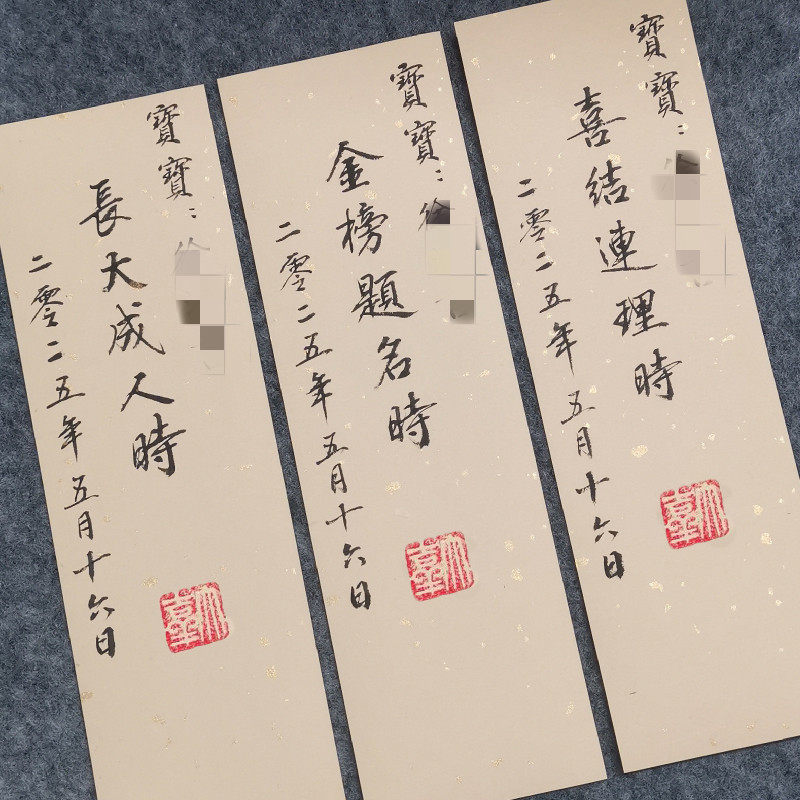 寶寶：
長大成人時
二零二五年五月十六日
寶寶：徐
金榜題名時
二零二五年五月十六日
寶寶：
喜結連理時
二零二五年五月十六日